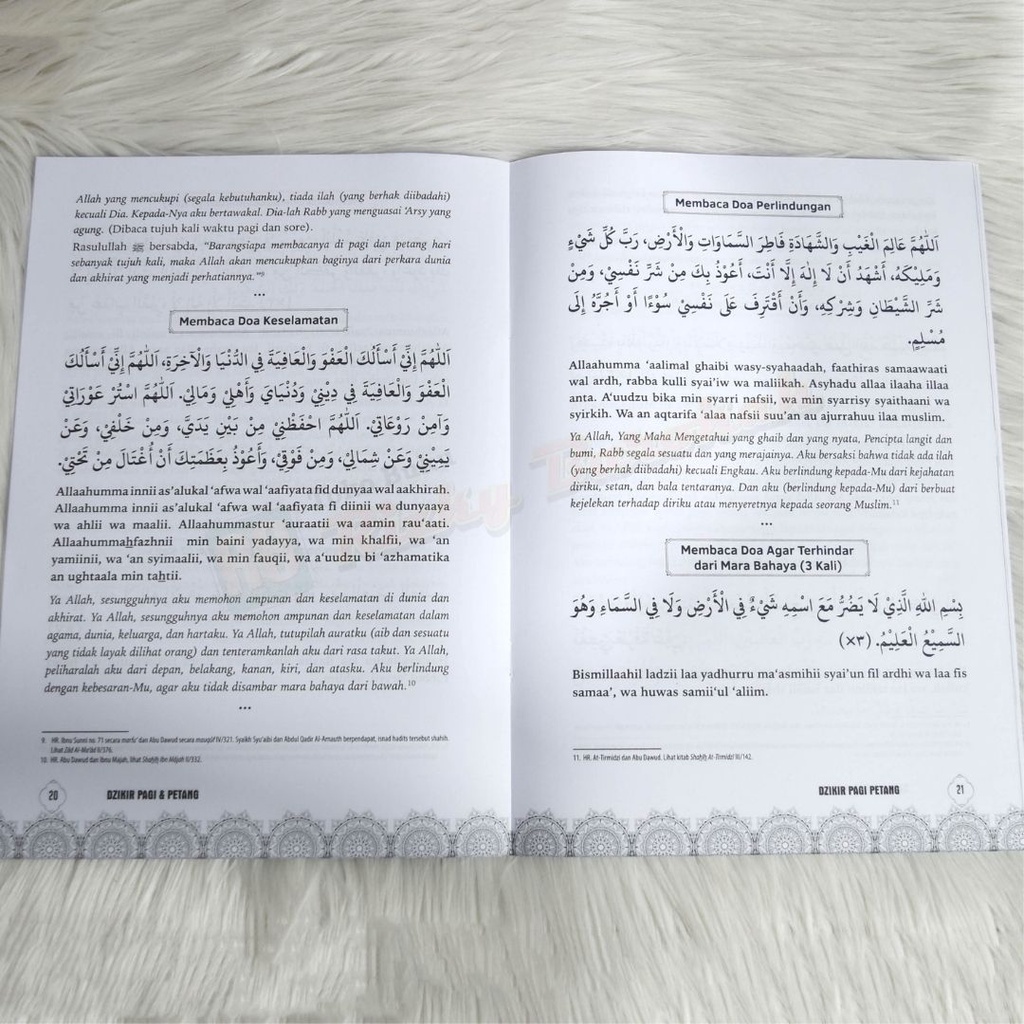 Allah yang mencukupi (segala kebutuhanku), tiada ilah (yang berhak diibadahi)
kecuali Dia. Kepada-Nya aku bertawakal. Dia-lah Rabb yang menguasai 'Arsy yang
agung. (Dibaca tujuh kali waktu pagi dan sore).
Rasulullah ﷺ bersabda, "Barangsiapa membacanya di pagi dan petang hari
sebanyak tujuh kali, maka Allah akan mencukupkan baginya dari perkara dunia
dan akhirat yang menjadi perhatiannya."⁹
•••
Membaca Doa Keselamatan
اَللّٰهُمَّ إِنِّيْ أَسْأَلُكَ الْعَفْوَ وَالْعَافِيَةَ فِي الدُّنْيَا وَالْآخِرَةِ، اَللّٰهُمَّ إِنِّيْ أَسْأَلُكَ
الْعَفْوَ وَالْعَافِيَةَ فِي دِيْنِيْ وَدُنْيَايَ وَأَهْلِيْ وَمَالِيْ. اَللّٰهُمَّ اسْتُرْ عَوْرَاتِيْ
وَآمِنْ رَوْعَاتِيْ. اَللّٰهُمَّ احْفَظْنِيْ مِنْ بَيْنِ يَدَيَّ، وَمِنْ خَلْفِيْ، وَعَنْ
يَمِيْنِيْ وَعَنْ شِمَالِيْ، وَمِنْ فَوْقِيْ، وَأَعُوْذُ بِعَظَمَتِكَ أَنْ أُغْتَالَ مِنْ تَحْتِيْ.
Allaahumma innii as'alukal 'afwa wal 'aafiyata fid dunyaa wal aakhirah.
Allaahumma innii as'alukal 'afwa wal 'aafiyata fi diinii wa dunyaaya
wa ahlii wa maalii. Allaahummastur 'auraatii wa aamin rau'aati.
Allaahummahfazhnii min baini yadayya, wa min khalfii, wa 'an
yamiinii, wa 'an syimaalii, wa min fauqii, wa a'uudzu bi 'azhamatika
an ughtaala min tahtii.
Ya Allah, sesungguhnya aku memohon ampunan dan keselamatan di dunia dan
akhirat. Ya Allah, sesungguhnya aku memohon ampunan dan keselamatan dalam
agama, dunia, keluarga, dan hartaku. Ya Allah, tutupilah auratku (aib dan sesuatu
yang tidak layak dilihat orang) dan tenteramkanlah aku dari rasa takut. Ya Allah,
peliharalah aku dari depan, belakang, kanan, kiri, dan atasku. Aku berlindung
dengan kebesaran-Mu, agar aku tidak disambar mara bahaya dari bawah.¹⁰
•••
9. HR. Ibnu Sunni no. 71 secara marfu' dan Abu Dawud secara mauquf IV/321. Syaikh Syu'aibi dan Abdul Qadir Al-Arnauth berpendapat, isnad hadits tersebut shahih.
Lihat Zâd Al-Ma'âd II/376.
10. HR. Abu Dawud dan Ibnu Majah, lihat Shahîh Ibn Mâjah II/332.
20 DZIKIR PAGI & PETANG
Membaca Doa Perlindungan
اَللّٰهُمَّ عَالِمَ الْغَيْبِ وَالشَّهَادَةِ فَاطِرَ السَّمَاوَاتِ وَالْأَرْضِ، رَبَّ كُلِّ شَيْءٍ
وَمَلِيْكَهُ، أَشْهَدُ أَنْ لَا إِلٰهَ إِلَّا أَنْتَ، أَعُوْذُ بِكَ مِنْ شَرِّ نَفْسِيْ، وَمِنْ
شَرِّ الشَّيْطَانِ وَشِرْكِهِ، وَأَنْ أَقْتَرِفَ عَلَى نَفْسِيْ سُوْءًا أَوْ أَجُرَّهُ إِلَى
مُسْلِمٍ.
Allaahumma 'aalimal ghaibi wasy-syahaadah, faathiras samaawaati
wal ardh, rabba kulli syai'iw wa maliikah. Asyhadu allaa ilaaha illaa
anta. A'uudzu bika min syarri nafsii, wa min syarrisy syaithaani wa
syirkih. Wa an aqtarifa 'alaa nafsii suu'an au ajurrahuu ilaa muslim.
Ya Allah, Yang Maha Mengetahui yang ghaib dan yang nyata, Pencipta langit dan
bumi, Rabb segala sesuatu dan yang merajainya. Aku bersaksi bahwa tidak ada ilah
(yang berhak diibadahi) kecuali Engkau. Aku berlindung kepada-Mu dari kejahatan
diriku, setan, dan bala tentaranya. Dan aku (berlindung kepada-Mu) dari berbuat
kejelekan terhadap diriku atau menyeretnya kepada seorang Muslim.¹¹
•••
Membaca Doa Agar Terhindar
dari Mara Bahaya (3 Kali)
بِسْمِ اللهِ الَّذِيْ لَا يَضُرُّ مَعَ اسْمِهِ شَيْءٌ فِي الْأَرْضِ وَلَا فِي السَّمَاءِ وَهُوَ
السَّمِيْعُ الْعَلِيْمُ. (٣×)
Bismillaahil ladzii laa yadhurru ma'asmihii syai'un fil ardhi wa laa fis
samaa', wa huwas samii'ul 'aliim.
11. HR. At-Tirmidzi dan Abu Dawud. Lihat kitab Shahîh At-Tirmidzî III/142.
DZIKIR PAGI PETANG 21